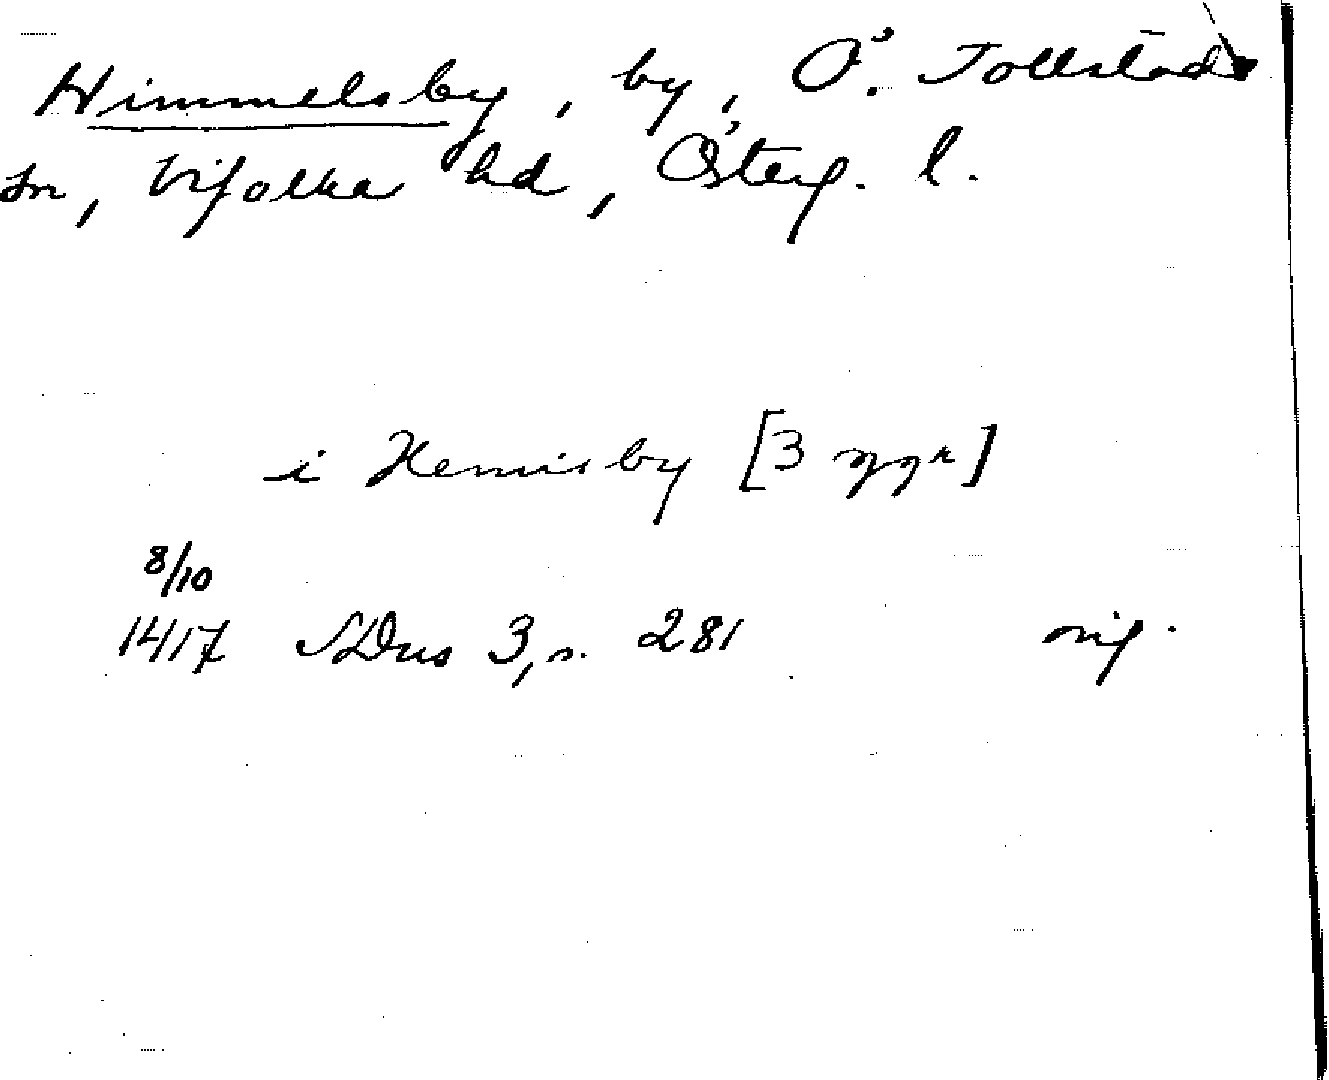 Himmelsby, by, Ö. Tollstads
sn, Vifolka hd, Österg. l.
i Hemisby [3 ggr]
8/10
1417 SDns 3, s. 281 orig.